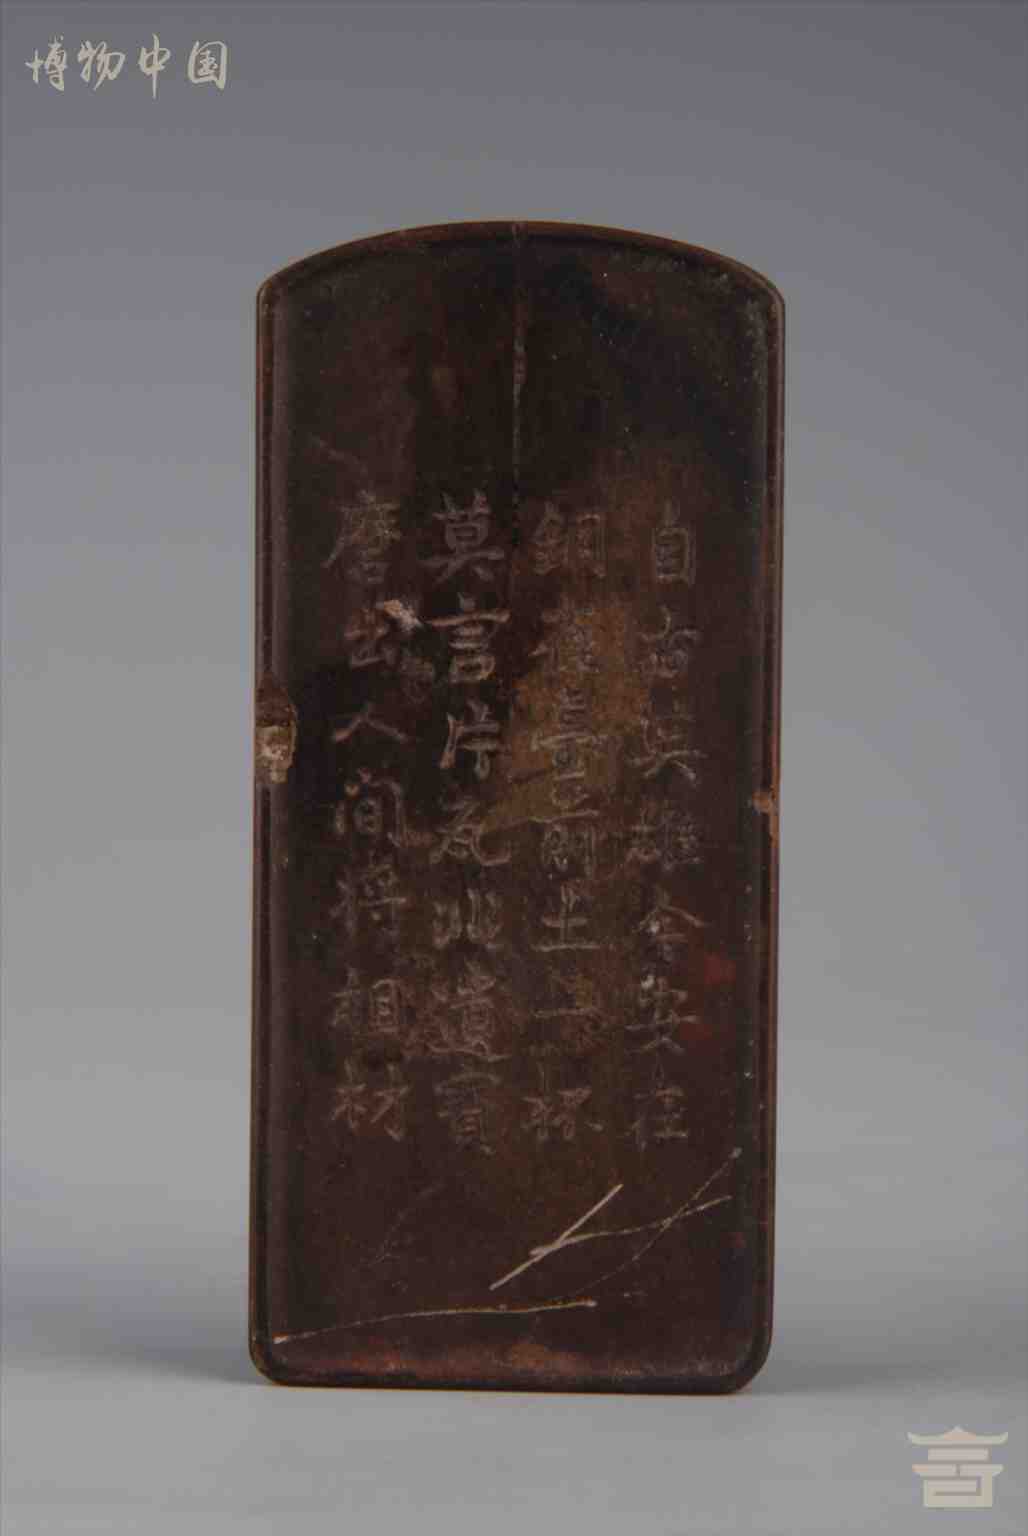 博物中国
自古英雄今安在
銅雀臺前土一抔
莫言片瓦非遺寶
磨出人間將相材